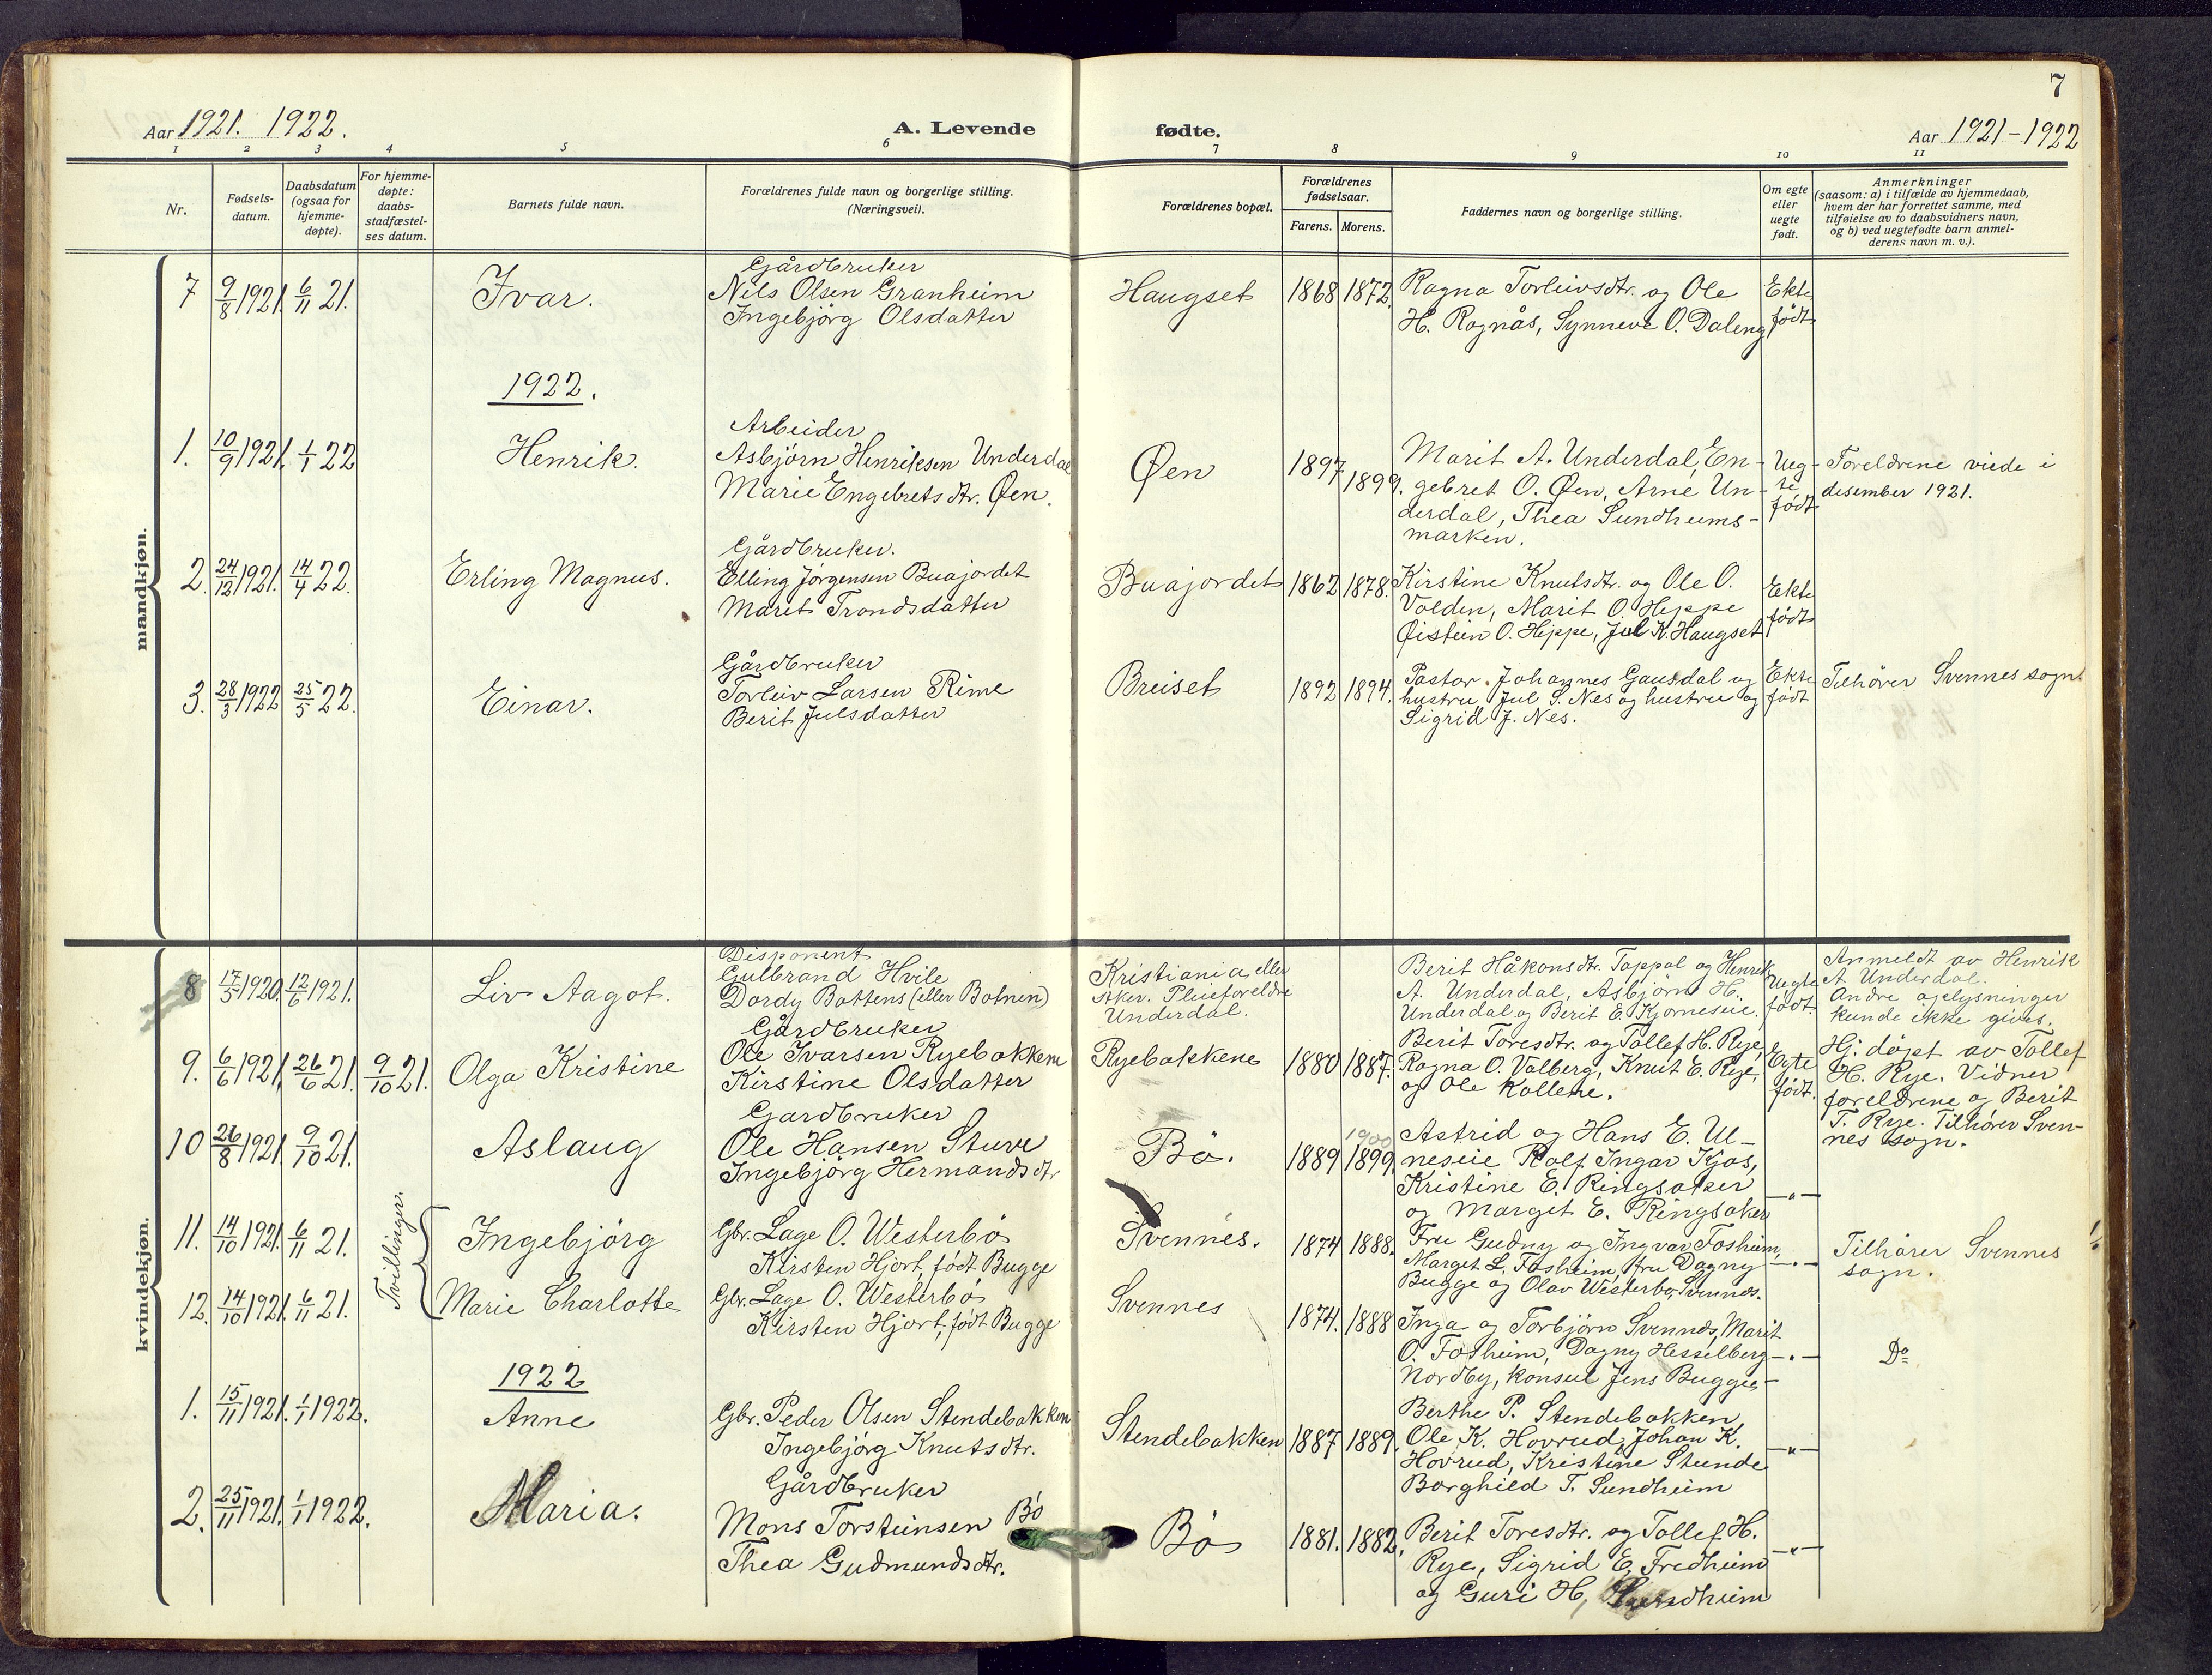 7
Aar 1921. 1922.
A. Levende fødte.
Aar 1921-1922
1 2 3 4 5 6 7 8 9 10 11
Nr.
Fødsels-
datum.
Daabsdatum
(ogsaa for
hjemme-
døpte).
For hjemme-
døpte:
daabs-
stadfæstel-
ses datum.
Barnets fulde navn.
Forældrenes fulde navn og borgerlige stilling.
(Næringsvei).
Forældrenes bopæl.
Forældrenes
fødselsaar.
Farens. Morens.
Faddernes navn og borgerlige stilling.
Om egte
eller
uegte
født.
Anmerkninger
(saasom: a) i tilfælde av hjemmedaab,
hvem der har forrettet samme, med
tilføielse av to daabsvidners navn,
og b) ved uegtefødte barn anmel-
derens navn m. v.).
mandkjøn.
7 9/8 1921. 6/11 21. Ivar.
Gårdbruker
Nils Olsen Granheim
Ingebjörg Olsdatter
Haugset 1868 1872.
Ragna Torleivsdtr. og Ole
H. Rognås, Synneve O. Daleng
Ekte
født
1922.
1. 10/9 1921. 1/1 22 Henrik.
Arbeider
Asbjörn Henriksen Underdal
Marie Engebretsdtr. Øen.
Øen 1897 1899.
Marit A. Underdal, En-
gebret O. Øen, Arne Un-
derdal, Thea Sundheims-
marken.
Ueg-
te
født
Foreldrene viede i
desember 1921.
2. 24/12 1921. 14/4 22. Erling Magnus.
Gårdbruker.
Elling Jörgensen Buajordet
Marit Trondsdatter
Buajordet 1862 1878.
Kirstine Knutsdtr. og Ole O.
Volden, Marit O. Heppe
Øistein O. Hippe, Jul K. Haugset
Ekte
født
3. 28/3 1922 25/5 22. Einar.
Gårdbruker
Torleiv Larsen Rime
Berit Julsdatter
Breiset 1892 1894.
Pastor Johannes Gausdal og
hustru, Jul S. Nes og hustru og
Sigrid J. Nes.
Ekte
født
Tilhører Svennes sogn.
kvindekjøn.
8 17/5 1920. 12/6 1921. Liv Aagot.
Disponent
Gulbrand Hvile
Dordy Bottens (eller Botnen)
Kristiania eller
Aker. Pleieforeldre
Underdal.
Berit Håkonsdtr. Tappal og Henrik
A. Underdal, Asbjörn H.
Underdal og Berit E. Kjörneseie.
Uegte
født.
Anmeldt av Henrik
A. Underdal.
Andre oplysninger
kunde ikke gives.
9. 6/6 1921. 26/6 21. 9/10 21. Olga Kristine
Gårdbruker
Ole Ivarsen Ryebakkene
Kirstine Olsdatter
Ryebakkene 1880 1887.
Berit Toresdtr. og Tollef H. Rye,
Ragna O. Valberg, Knut E. Rye,
og Ole Kollene.
Egte
født.
Hj. döpt av Tollef
H. Rye. Vidner
foreldrene og Berit
T. Rye. Tilhører Sven-
nes sogn.
10 26/8 1921. 9/10 21. Aslaug
Gardbruker
Ole Hansen Sture
Ingebjörg Hermandsdtr
Bö. 1889 1900 1899.
Astrid og Hans E. Ul-
neseie Rolf Ingar Kjos,
Kristine E. Ringsaker
og Marget E. Ringsaker
—"—
Tvillinger.
11. 14/10 1921. 6/11 21. Ingebjörg
Gbr. Lage O. Westerbö
Kirsten Hjort, født Bugge
Svennes. 1874 1888.
Fru Gudny og Ingvar Fosheim,
Marget L. Fosheim, fru Dagny
Bugge og Olav Westerbø, Svennes.
—"—
Tilhører Svennes
sogn.
12. 14/10 1921. 6/11 21. Marie Charlotte
Gbr. Lage O. Westerbö
Kirsten Hjort, født Bugge
Svennes 1874. 1888
Inga og Torbjörn Svennes, Marit
O. Fosheim, Dagny Hesselberg
Nordby, konsul Jens Bugges-
—"—
Do
1922
1. 15/11 1921. 1/1 1922. Anne
Gbr. Peder Olsen Stendebakken
Ingebjörg Knutsdtr.
Stendebakken 1887 1889.
Berthe P. Stendebakken,
Ole K. Hovrud, Johan K.
Hovrud, Kristine Stende
Borghild T. Sundheim
—"—
2. 25/11 1921. 1/1 1922. Maria.
Gårdbruker
Mons Torsteinsen Bö
Thea Gudmundsdtr.
Bö 1881. 1882.
Berit Toresdtr. og Tollef H.
Rye, Sigrid E. Fredheim
og Guri H. Sundheim
—"—